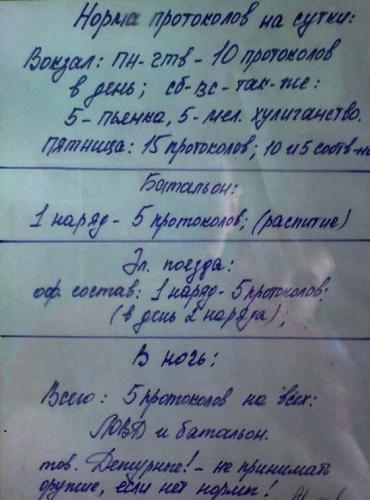 Норма протоколов на сутки:
Вокзал: пн-чтв - 10 протоколов
в день; сб-вс-так-же:
5-пьенка, 5-мел. хулиганство.
Пятница: 15 протоколов; 10 и 5 соотв-но
Батальон:
1 наряд - 5 протоколов; (распитие)
Эл. поезда:
оф. состав: 1 наряд - 5 протоколов;
(в день 2 наряда);
В ночь:
Всего: 5 протоколов на всех:
ЛОВД и батальон.
тов. Дежурные! - не принимать
оружие, если нет нормы!